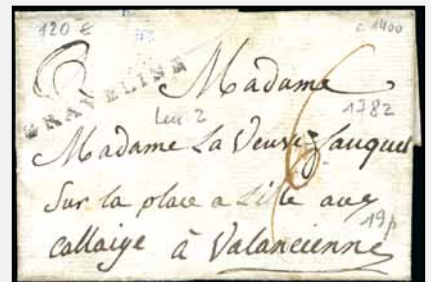 120 € c 1400
GRAVELINE
Madame
1782
Lem 2
Madame La Veuve Jauquet
Sur la place a Lille aux
19p
callaige à Valancienne